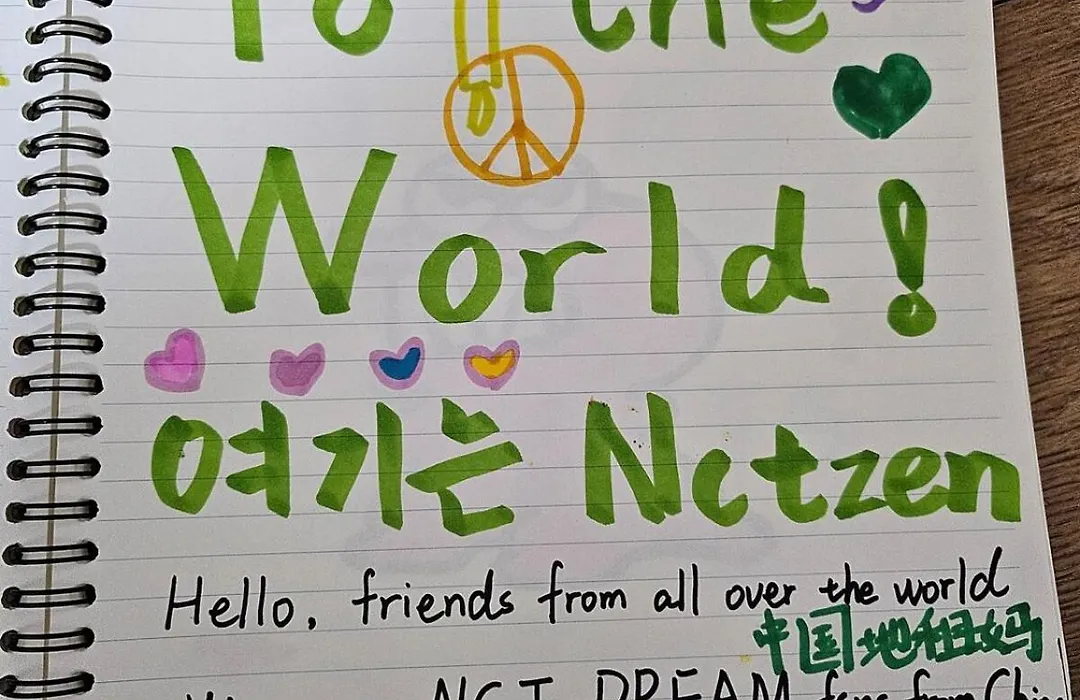 To the
World!
여기는 Nctzen
Hello, friends from all over the world
中国地租妈
NCT DREAM fans from China